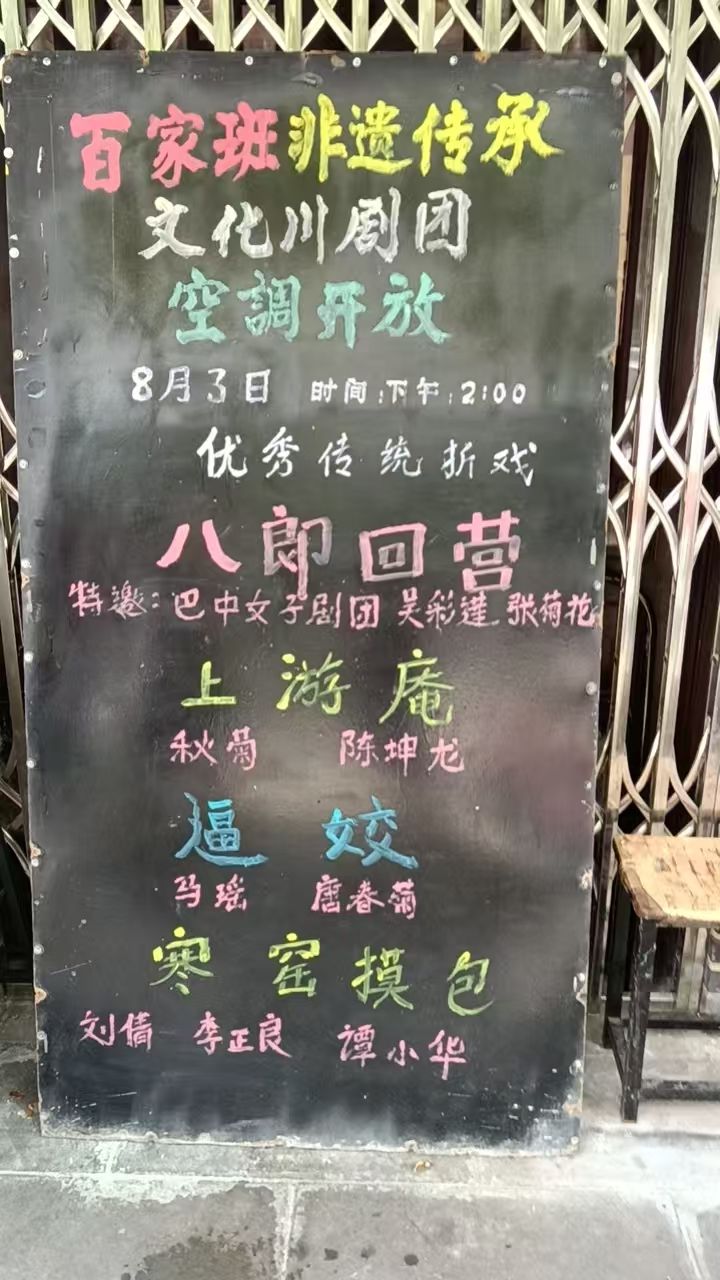 百家班非遗传承
文化川剧团
空調开放
8月3日 时间:下午:2:00
优秀传统折戏
八郎回营
特邀:巴中女子剧团 吴彩莲 张菊花
上游庵
秋菊 陈坤龙
逼姣
马瑶 唐春菊
寒窑摸包
刘倩 李正良 谭小华